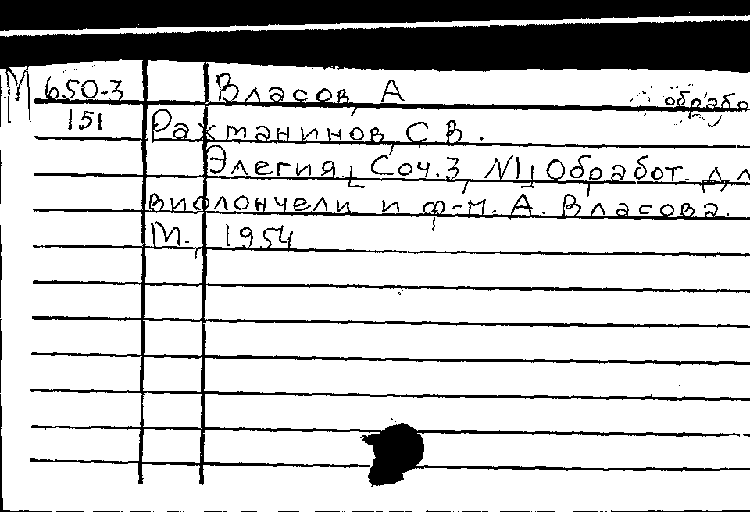 М 650-3 Власов, А обрабо
151 Рахманинов, С.В.
Элегия, Соч.3, №1, Обработ. дл
виолончели и ф-п. А. Власова.
М., 1954